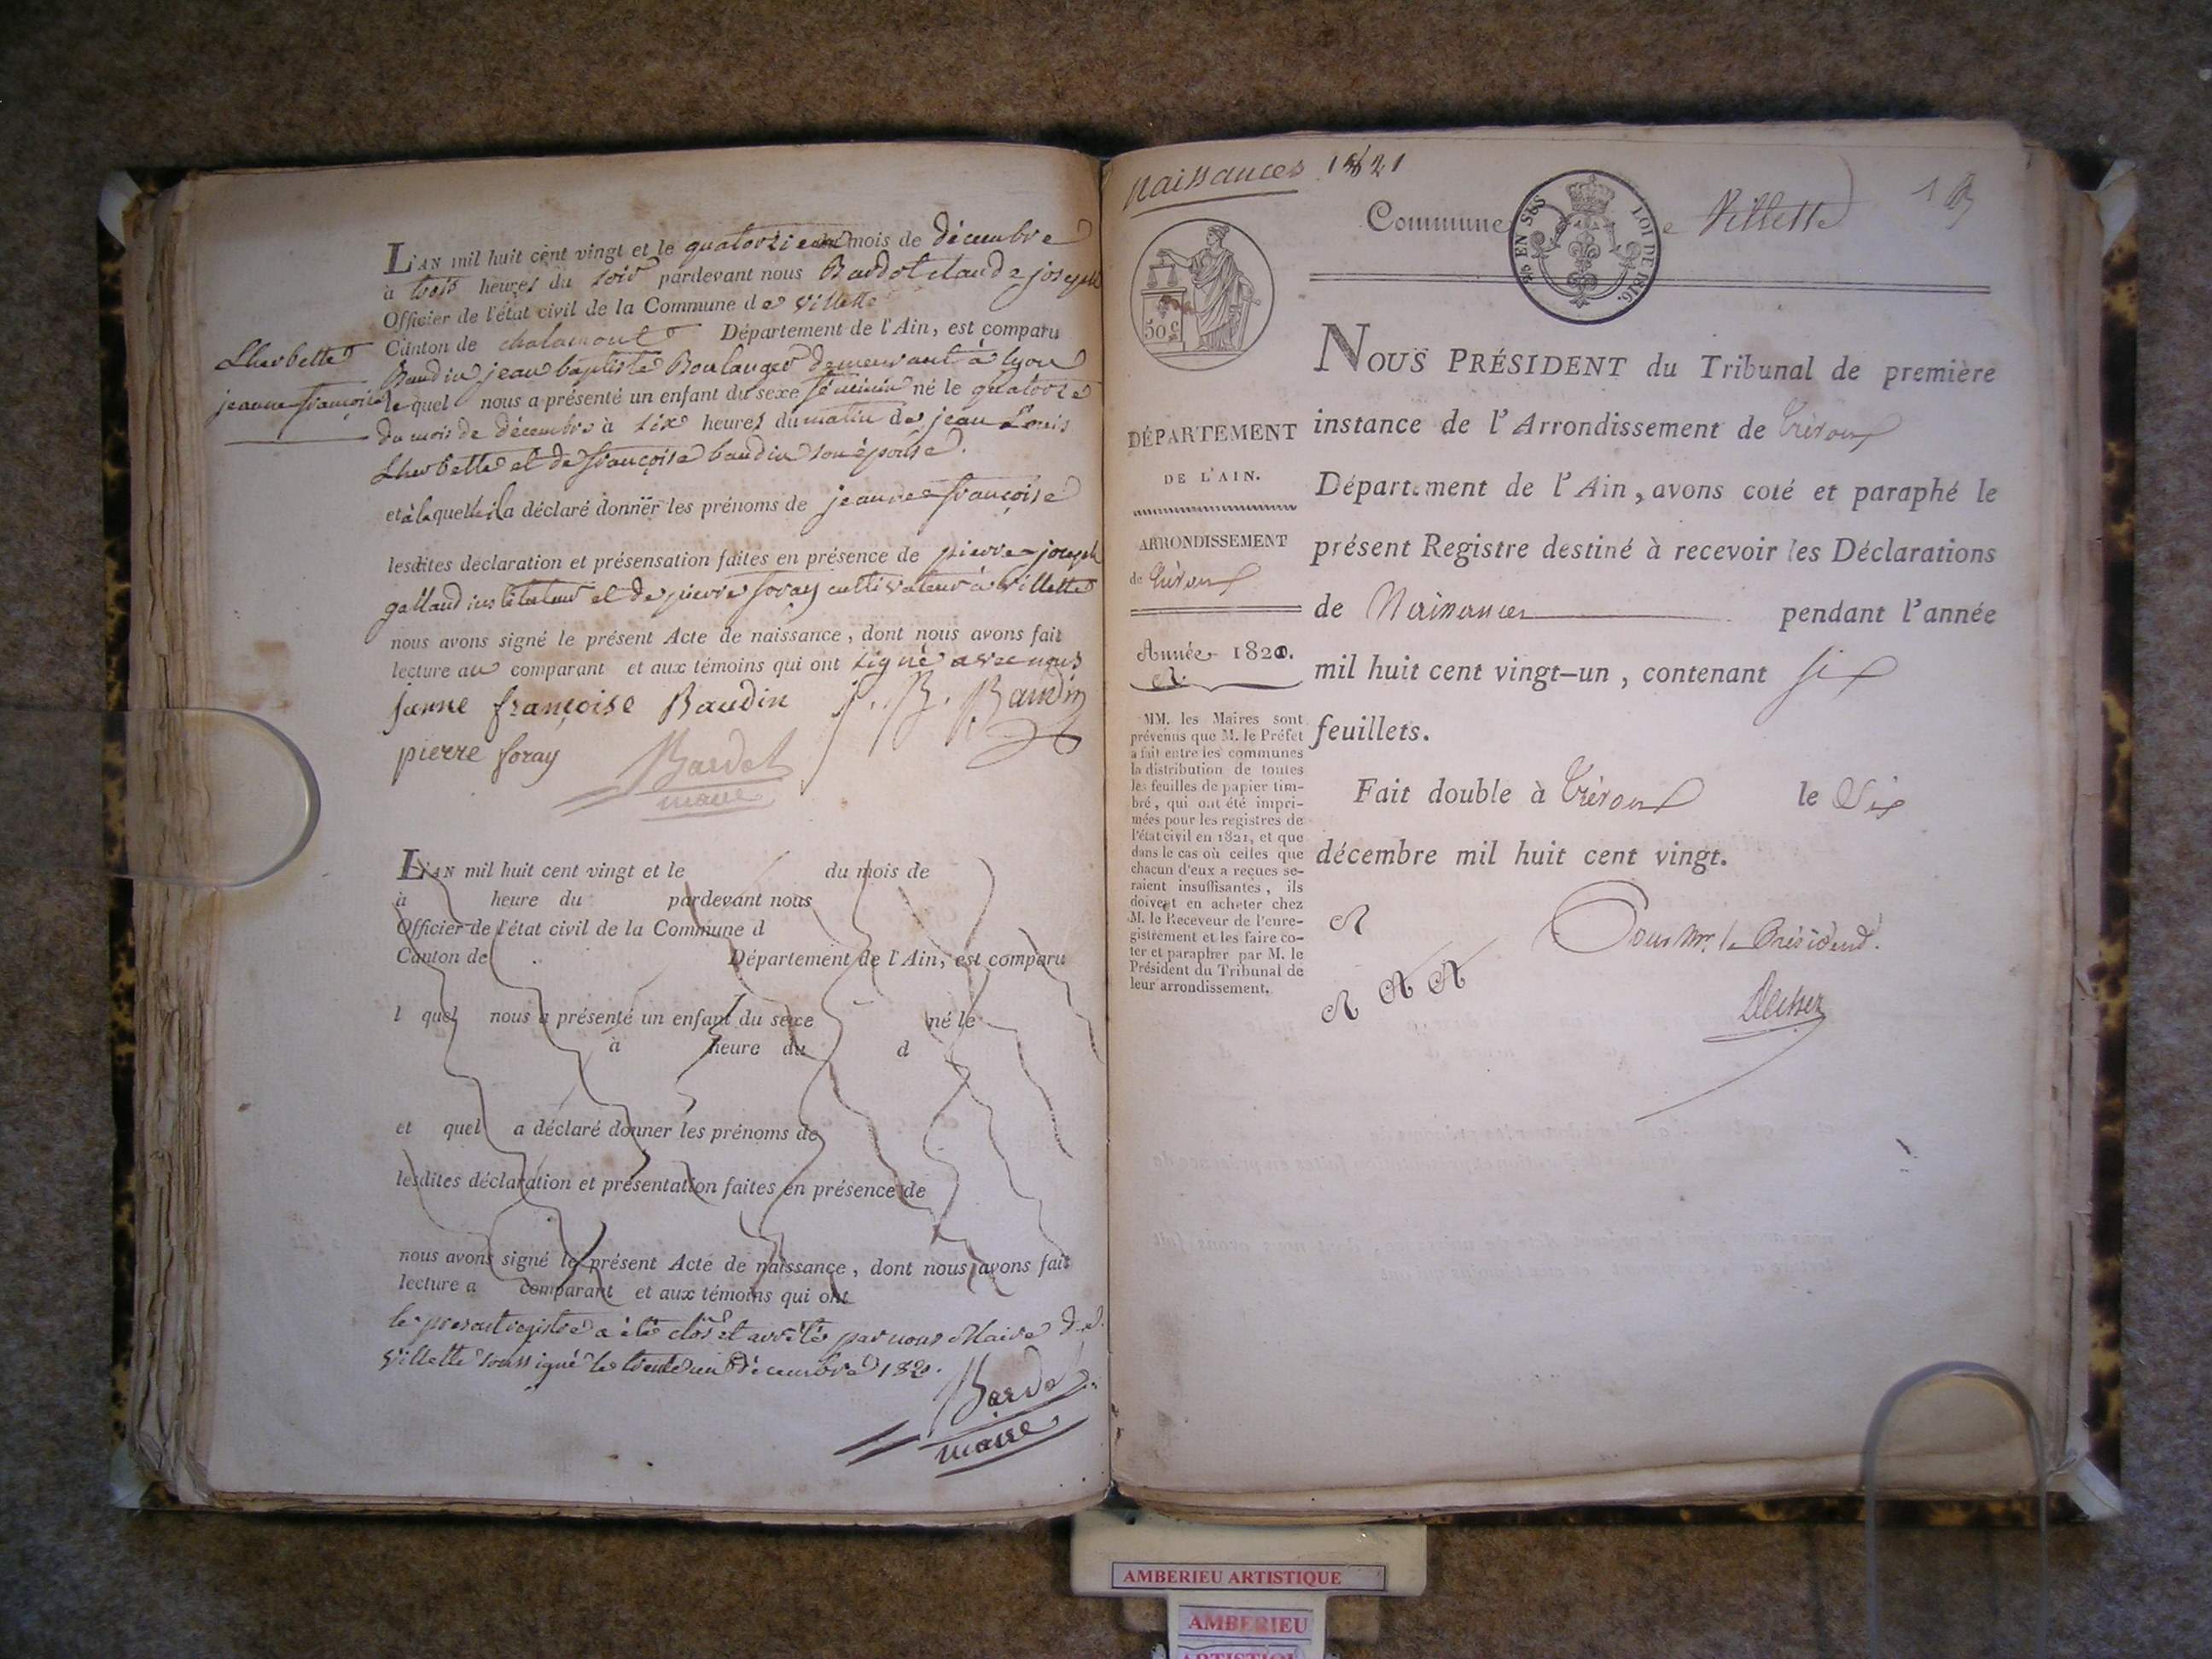 Lherbette
jeanne françoise
L'AN mil huit cent vingt et le quatorzieme mois de décembre
à trois heures du soir pardevant nous Bardot claude joseph
Officier de l'état civil de la Commune de villette
Canton de chalamont Département de l'Ain, est comparu
Baudin jean baptiste Boulanger demeurant à lyon
le quel nous a présenté un enfant du sexe féminin né le quatorze
du mois de décembre à six heures du matin de jean Louis
Lherbette et de françoise baudin son épouse.
et à laquelle il a déclaré donner les prénoms de jeanne françoise
lesdites déclaration et présensation faites en présence de pierre joseph
galland instituteur et de pierre foray cultivateur à villette
nous avons signé le présent Acte de naissance, dont nous avons fait
lecture au comparant et aux témoins qui ont signé avec nous
janne françoise Baudin J. B. Baudin
pierre foray Bardot
maire
L'AN mil huit cent vingt et le du mois de
à heure du pardevant nous
Officier de l'état civil de la Commune d
Canton de Département de l'Ain, est comparu
l quel nous a présenté un enfant du sexe né le
à heure du d
et quel a déclaré donner les prénoms de
lesdites déclaration et présentation faites en présence de
nous avons signé le présent Acte de naissance, dont nous avons fait
lecture a comparant et aux témoins qui ont
le present registre a été clos et arrêté par nous Maire de
villette soussigné le trente un décembre 1820.
Bardot
maire
naissances 1821
Commune de Villette
EN SUS LOI DE 1816.
50 c
DÉPARTEMENT
DE L'AIN.
ARRONDISSEMENT
de Trévoux
Année 1821.
MM. les Maires sont
prévenus que M. le Préfet
a fait entre les communes
la distribution de toutes
les feuilles de papier tim-
bré, qui ont été impri-
mées pour les registres de
l'état civil en 1821, et que
dans le cas où celles que
chacun d'eux a reçues se-
raient insuffisantes, ils
doivent en acheter chez
M. le Receveur de l'enre-
gistrement et les faire co-
ter et parapher par M. le
Président du Tribunal de
leur arrondissement.
NOUS PRÉSIDENT du Tribunal de première
instance de l'Arrondissement de Trévoux
Département de l'Ain, avons coté et paraphé le
présent Registre destiné à recevoir les Déclarations
de Naissances pendant l'année
mil huit cent vingt-un, contenant six
feuillets.
Fait double à Trévoux le Six
décembre mil huit cent vingt.
Pour Mr. le Président.
AMBERIEU ARTISTIQUE
AMBERIEU
ARTISTIQUE